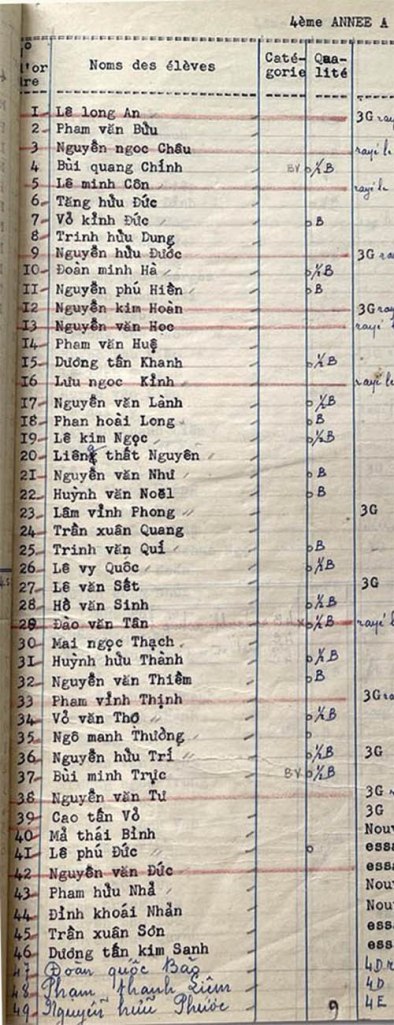 4ème ANNEE A
Noms des élèves Caté- Qua-
gorie lité
I Lê long An 3G
2 Pham văn Bửu
3 Nguyễn ngoc Châu rayé le
4 Bùi quang Chính BV ½B
5 Lê minh Côn rayé le
6 Tăng hửu Đức
7 Vỏ kỉnh Đức B
8 Trinh hửu Dung
9 Nguyễn hửu Đước 3G
IO Đoàn minh Hà ½B
II Nguyễn phú Hiền B
I2 Nguyễn kim Hoàn 3G
I3 Nguyễn văn Học rayé
I4 Pham văn Huệ
I5 Dương tấn Khanh ½B
I6 Lưu ngoc Kỉnh rayé le
I7 Nguyễn văn Lành ½B
I8 Phan hoài Long B
I9 Lê kim Ngọc ½B
20 Liêng thất Nguyên
2I Nguyễn văn Như B
22 Huỳnh văn Noël B
23 Lâm vỉnh Phong 3G
24 Trần xuân Quang
25 Trinh văn Qui B
26 Lê vy Quốc ½B
27 Lê văn Sết 3G
28 Hồ văn Sinh ½B
29 Đào văn Tân x ½B rayé
30 Mai ngọc Thạch
3I Huỳnh hửu Thành ½B
32 Nguyễn văn Thiềm B
33 Pham vỉnh Thịnh 3G
34 Vỏ văn Thơ ½B
35 Ngô manh Thường
36 Nguyễn hửu Trí ½B 3G
37 Bùi minh Trực BV ½B
38 Nguyễn văn Tư 3G
39 Cao tấn Vỏ 3G
40 Mả thái Bình Nouv
4I Lê phú Đức essa
42 Nguyễn văn Đức essa
43 Pham hửu Nhả Nouv
44 Đỉnh khoái Nhản Nouv
45 Trần xuân Sơn essa
46 Dương tấn kim Sanh essa
47 Đoàn quốc Bảo 4D
48 Phạm thanh Liêm 4D
49 Nguyễn hữu Phước 4E